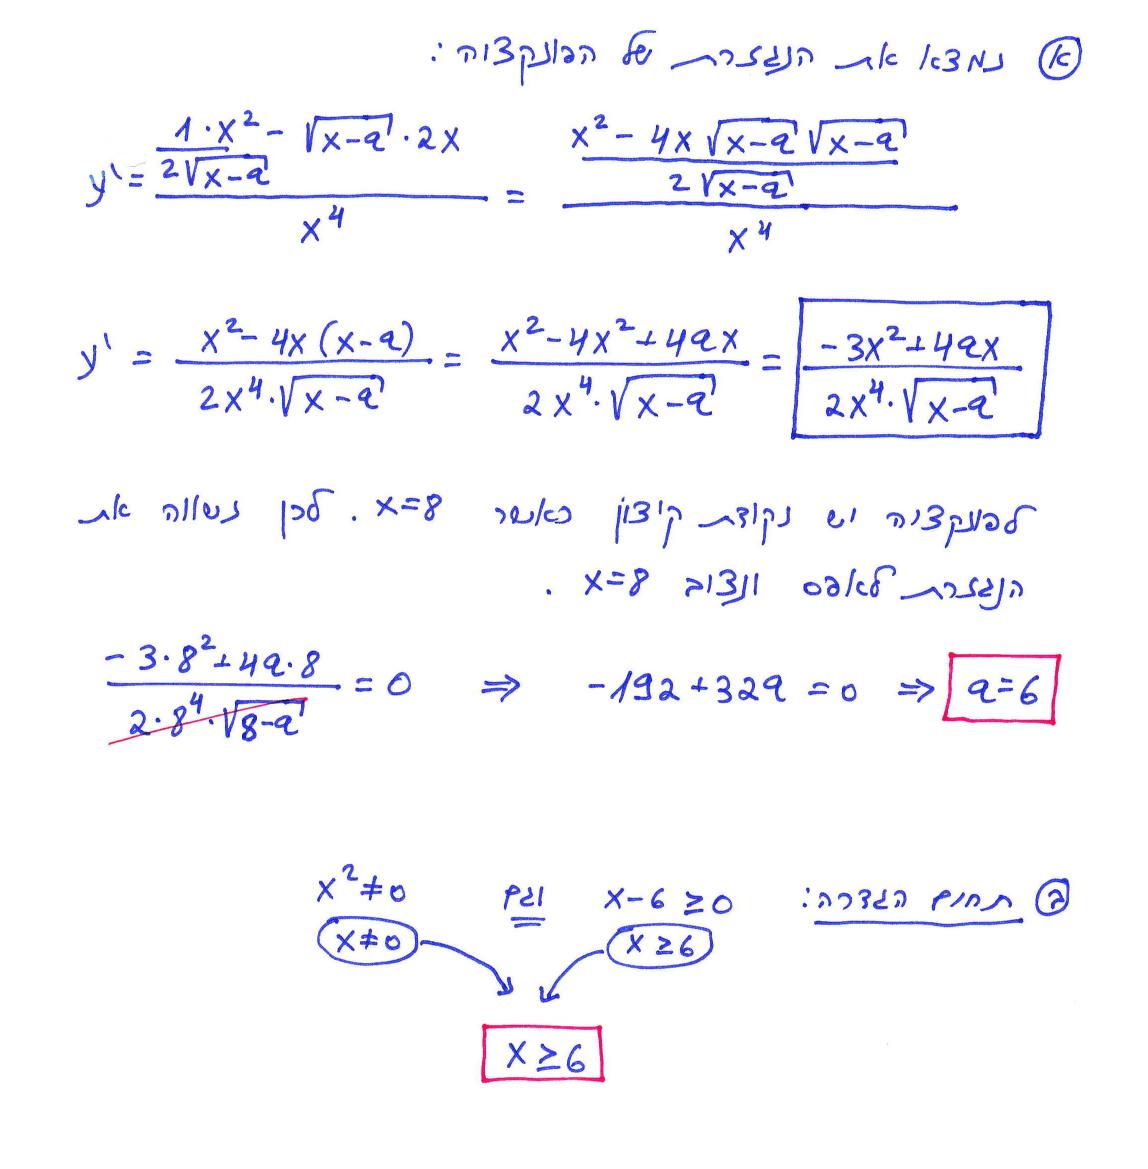 א נמצא את הנגזרת של הפונקציה:
y' = (1/(2√(x-a)) · x² - √(x-a) · 2x) / x⁴ = ((x² - 4x√(x-a)√(x-a)) / (2√(x-a))) / x⁴
y' = (x² - 4x(x-a)) / (2x⁴·√(x-a)) = (x² - 4x² + 4ax) / (2x⁴·√(x-a)) = (-3x² + 4ax) / (2x⁴·√(x-a))
לפונקציה יש נקודת קיצון כאשר x=8. לכן נשווה את
הנגזרת לאפס ונציב x=8.
(-3·8² + 4a·8) / (2·8⁴·√(8-a)) = 0 ⇒ -192 + 32a = 0 ⇒ a=6
ב תחום הגדרה: x-6 ≥ 0 וגם x² ≠ 0
x ≥ 6 x ≠ 0
x ≥ 6